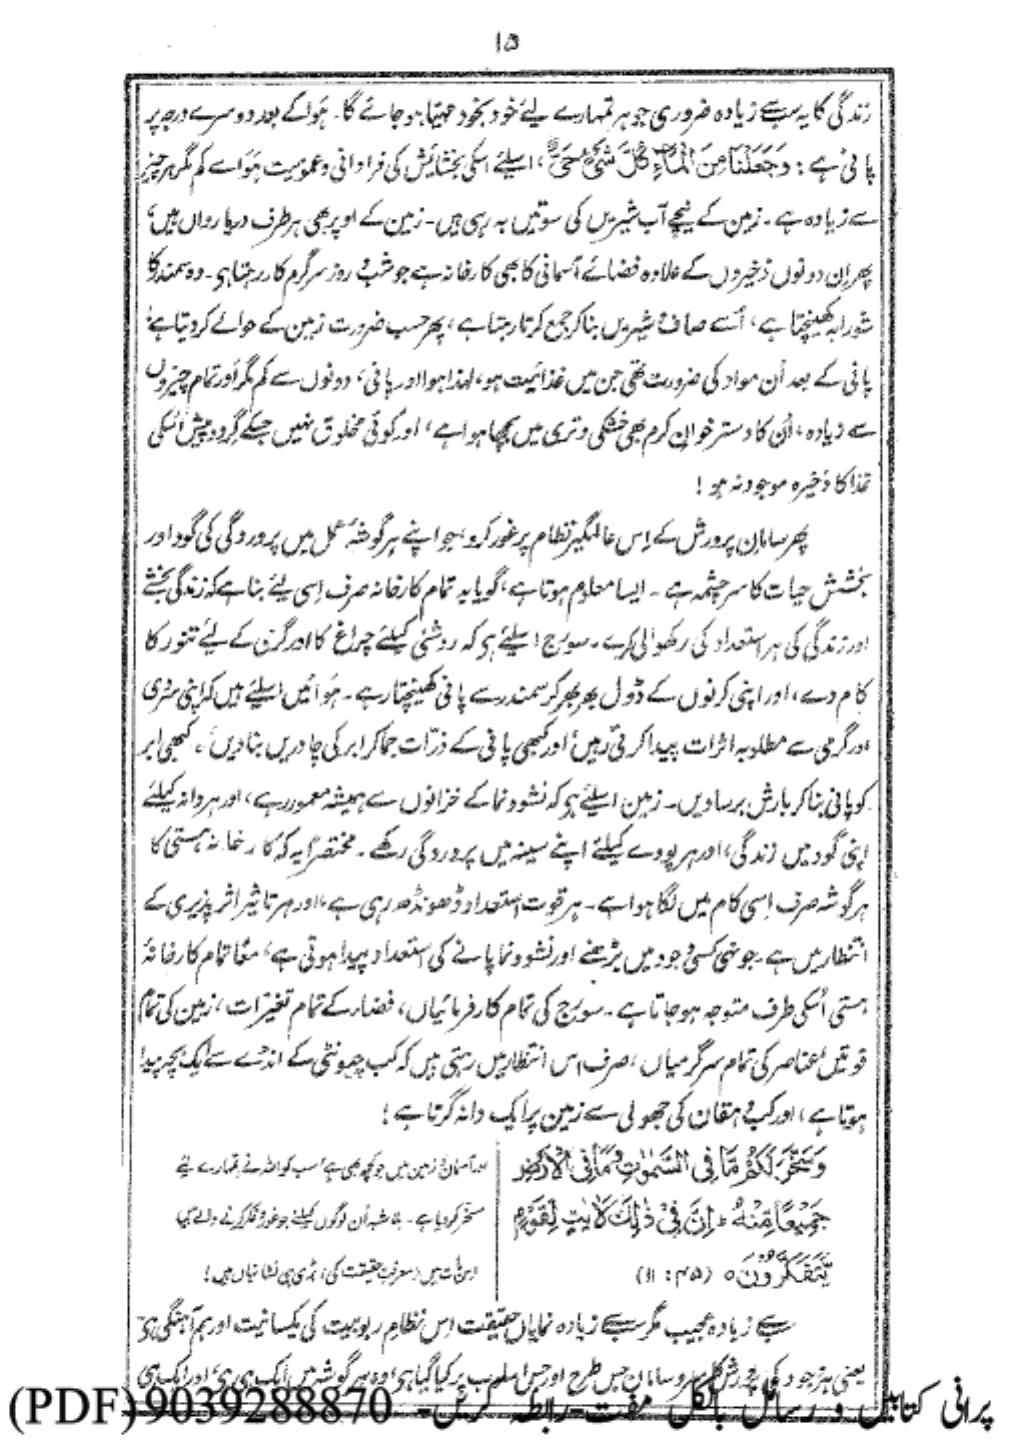 ۱۵
زندگی کا یہ سب سے زیادہ ضروری جوہر تمہارے لیے خود بخود مہیا ہو جائے گا۔ ہوا کے بعد دوسرے درجہ پر
پانی ہے : وَجَعَلْنَا مِنَ الْمَاءِ كُلَّ شَيْءٍ حَيٍّ، اسلئے اسکی بخشایش کی فراوانی و عمومیت ہوا سے کم مگر ہر چیز
سے زیادہ ہے۔ زمین کے نیچے آب شیریں کی سوتیں بہ رہی ہیں۔ زمین کے اوپر بھی ہر طرف دریا رواں ہیں،
پھر ان دونوں ذخیروں کے علاوہ فضائے آسمانی کا بھی کارخانہ ہے جو شب و روز سرگرم کار رہتا ہی۔ وہ سمندر کا
شورابہ کھینچتا ہے، اُسے صاف و شیریں بنا کر جمع کرتا رہتا ہے، پھر حسب ضرورت زمین کے حوالے کر دیتا ہے!
پانی کے بعد اُن مواد کی ضرورت تھی جن میں غذائیت ہو، لہذا ہوا اور پانی، دونوں سے کم مگر اور تمام چیزوں
سے زیادہ، اُن کا دستر خوان کرم بھی خشکی و تری میں بچھا ہوا ہے، اور کوئی مخلوق نہیں جسکے گرد و پیش اُسکی
غذا کا ذخیرہ موجود نہ ہو !
پھر سامان پرورش کے اِس عالمگیر نظام پر غور کرو، جو اپنے ہر گوشۂ عمل میں پروردگی کی گود اور
بخشش حیات کا سرچشمہ ہے۔ ایسا معلوم ہوتا ہے، گویا یہ تمام کارخانہ صرف اِسی لیے بنا ہے کہ زندگی بخشے
اور زندگی کی ہر استعداد کی رکھوالی کرے۔ سورج اسلئے ہی کہ روشنی کیلئے چراغ کا اور گرمی کے لیے تنور کا
کام دے، اور اپنی کرنوں کے ڈول بھر بھر کر سمندر سے پانی کھینچتا رہے۔ ہوائیں اسلئے ہیں کہ اپنی سردی
اور گرمی سے مطلوبہ اثرات پیدا کرتی رہیں، اور کبھی پانی کے ذرات جما کر ابر کی چادریں بنا دیں، کبھی ابر
کو پانی بنا کر بارش برسا دیں۔ زمین اسلئے ہی کہ نشوونما کے خزانوں سے ہمیشہ معمور رہے، اور ہر دانہ کیلئے
اپنی گود میں زندگی، اور ہر پودے کیلئے اپنے سینہ میں پروردگی رکھے۔ مختصراً یہ کہ کارخانۂ ہستی کا
ہر گوشہ صرف اِسی کام میں لگا ہوا ہے۔ ہر قوت استعداد ڈھونڈھ رہی ہے، اور ہر تاثیر اثر پذیری کے
انتظار میں ہے۔ جونہی کسی وجود میں بڑھنے اور نشوونما پانے کی استعداد پیدا ہوتی ہے، معاً تمام کارخانۂ
ہستی اُسکی طرف متوجہ ہو جاتا ہے۔ سورج کی تمام کارفرمائیاں، فضا کے تمام تغیرات، زمین کی تمام
قوتیں، عناصر کی تمام سرگرمیاں، صرف اس انتظار میں رہتی ہیں کہ کب چیونٹی کے انڈے سے ایک بچہ پیدا
ہوتا ہے، اور کب دہقان کی جھولی سے زمین پر ایک دانہ گرتا ہے !
وَسَخَّرَ لَكُمْ مَّا فِي السَّمٰوٰتِ وَمَا فِي الْاَرْضِ
جَمِيْعًا مِّنْهُ ، اِنَّ فِيْ ذٰلِكَ لَاٰيٰتٍ لِّقَوْمٍ
يَّتَفَكَّرُوْنَ ٥ (۴۵ : ۱۱)
اور آسمان و زمین میں جو کچھ بھی ہے، سب کو اللہ نے تمہارے لیے
مسخر کر دیا ہے۔ بلاشبہ اُن لوگوں کیلئے جو غور و فکر کرنے والے ہیں
اس بات میں (معرفت حقیقت کی) بڑی ہی نشانیاں ہیں !
سب سے زیادہ عجیب مگر سب سے زیادہ نمایاں حقیقت اس نظام ربوبیت کی یکسانیت اور ہم آہنگی ہی
یعنی ہر وجود کی پرورش کا سر و سامان جس طرح اور جس اسلوب پر کیا گیا ہی، وہ ہر گوشہ میں ایک ہی ہی، اور ایک ہی
پرانی کتابیں و رسائل بالکل مفت۔ رابطہ کریں۔ 9039288870 (PDF)